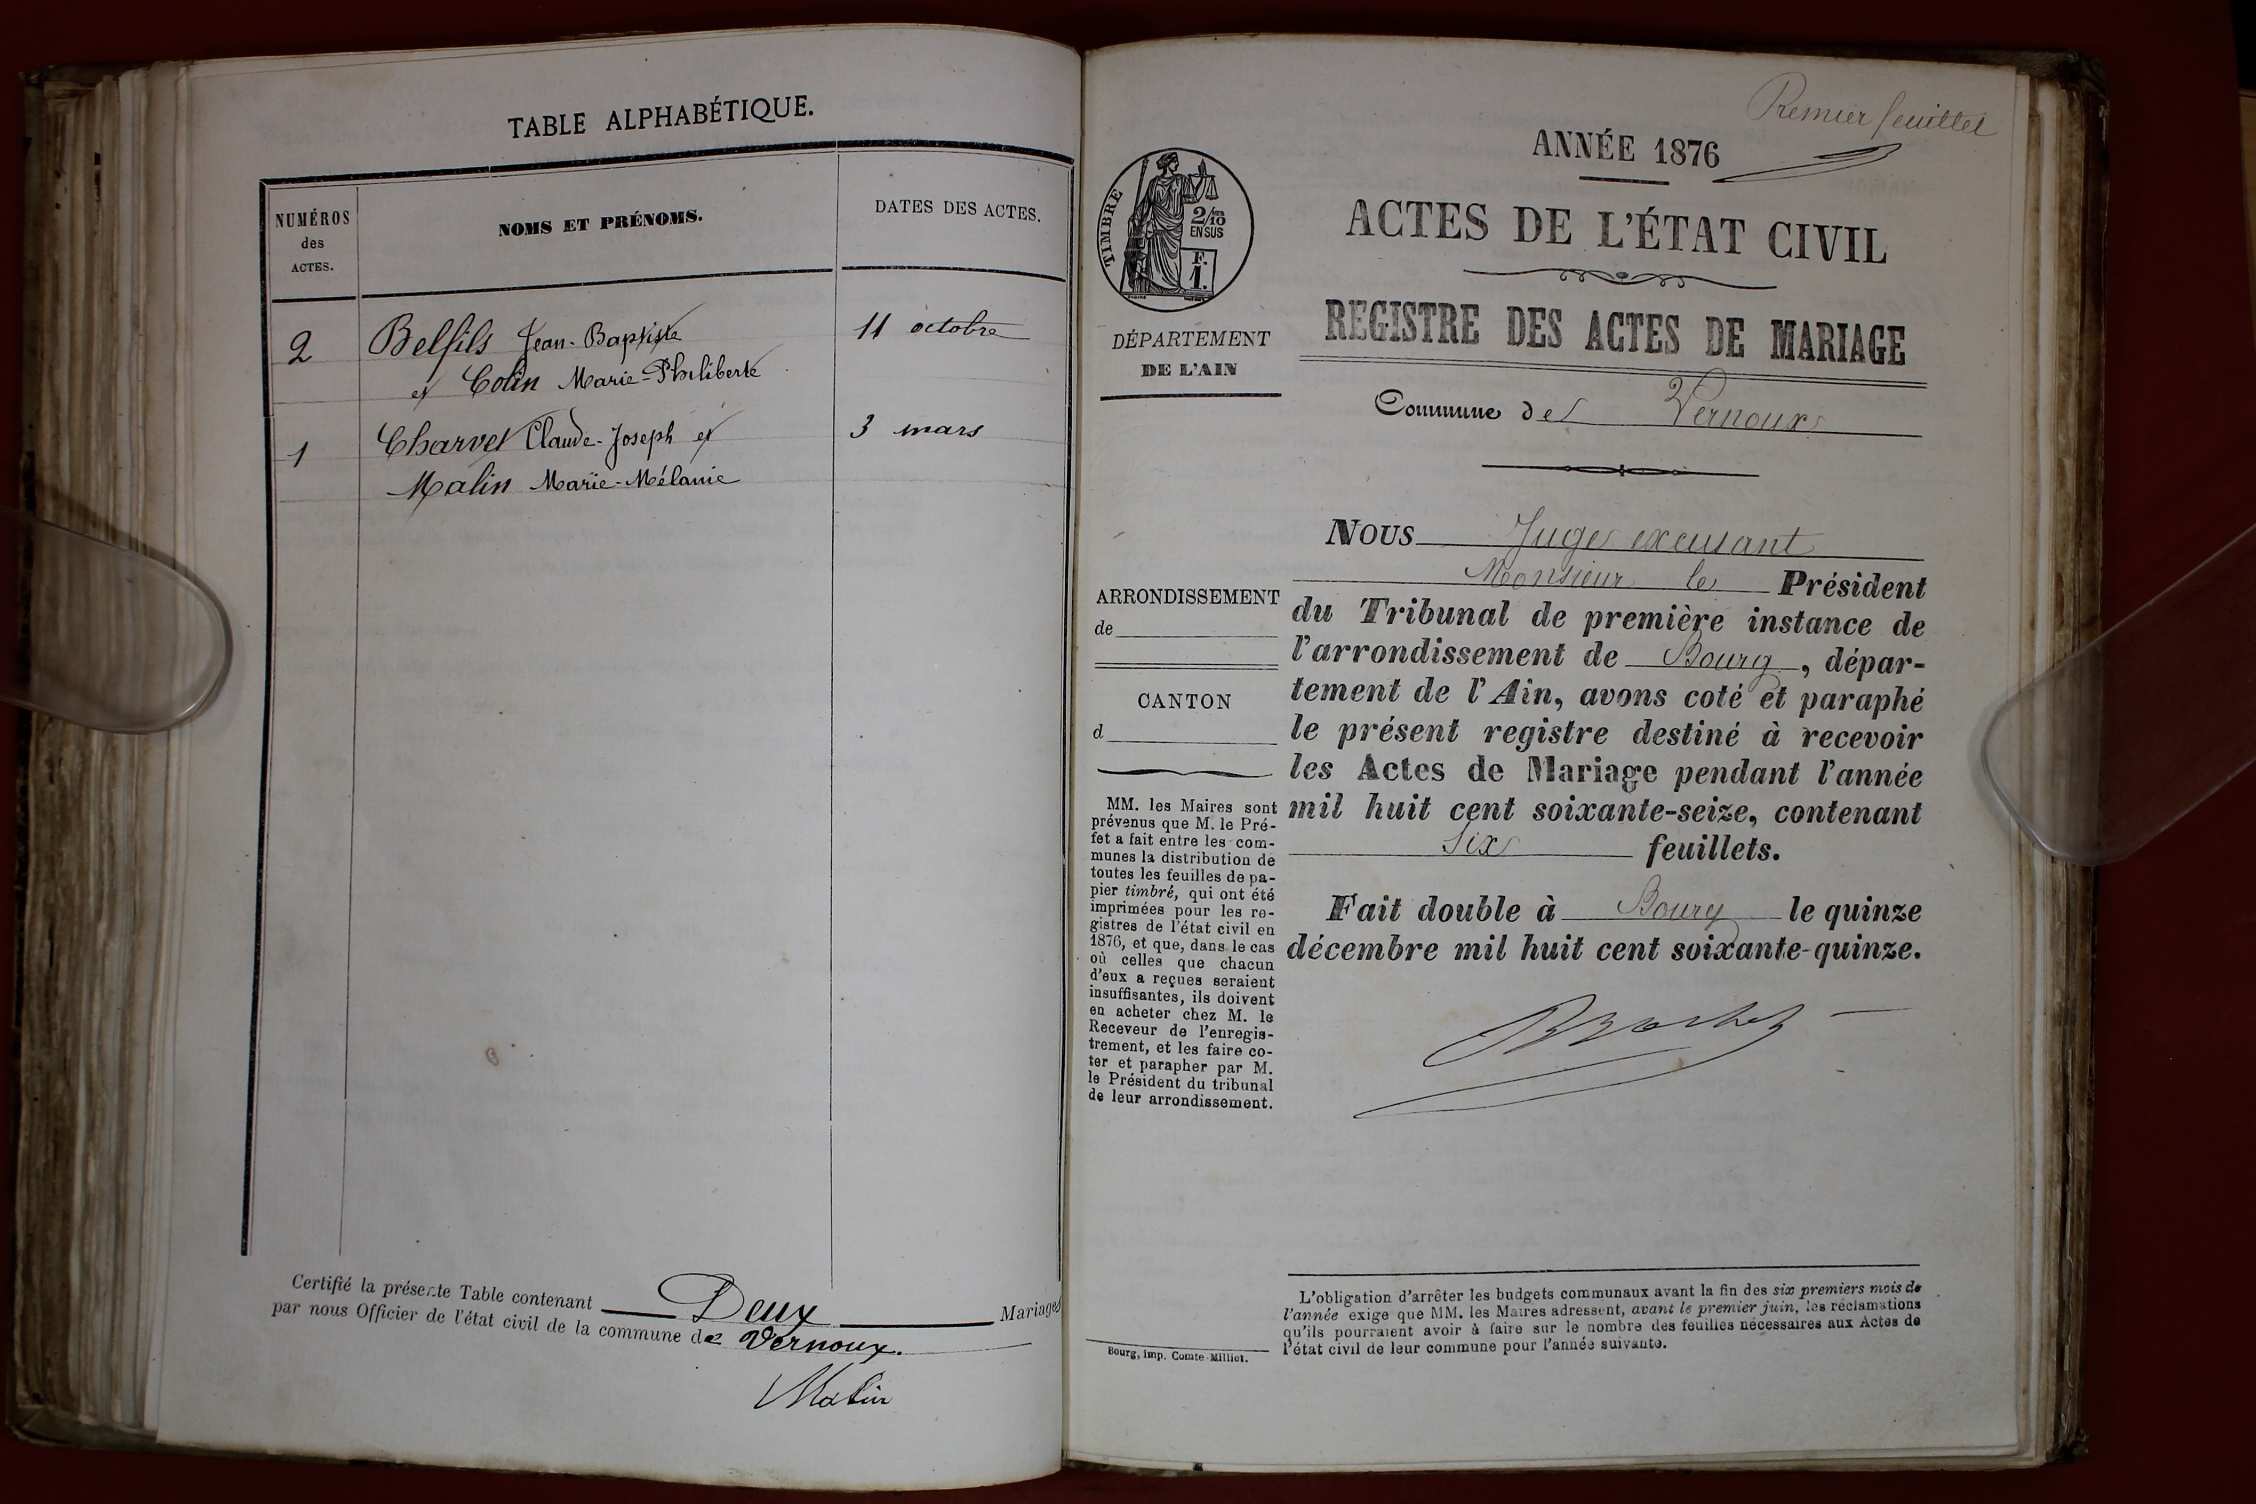 TABLE ALPHABÉTIQUE.
NUMÉROS
des
ACTES.
NOMS ET PRÉNOMS.
DATES DES ACTES.
2 Belfils Jean-Baptiste 11 octobre
et Colin Marie-Philiberte
1 Charvet Claude-Joseph et 3 mars
Malin Marie-Mélanie
Certifié la présente Table contenant Deux Mariages
par nous Officier de l'état civil de la commune de Vernoux.
Malin
Premier feuillet
ANNÉE 1876
ACTES DE L'ÉTAT CIVIL
REGISTRE DES ACTES DE MARIAGE
Commune de Vernoux
TIMBRE
2/10
EN SUS
F.
1.
DÉPARTEMENT
DE L'AIN
ARRONDISSEMENT
de
CANTON
d
MM. les Maires sont
prévenus que M. le Pré-
fet a fait entre les com-
munes la distribution de
toutes les feuilles de pa-
pier timbré, qui ont été
imprimées pour les re-
gistres de l'état civil en
1876, et que, dans le cas
où celles que chacun
d'eux a reçues seraient
insuffisantes, ils doivent
en acheter chez M. le
Receveur de l'enregis-
trement, et les faire co-
ter et parapher par M.
le Président du tribunal
de leur arrondissement.
Bourg, imp. Comte-Milliet.
NOUS Juge excusant
Monsieur le Président
du Tribunal de première instance de
l'arrondissement de Bourg, dépar-
tement de l'Ain, avons coté et paraphé
le présent registre destiné à recevoir
les Actes de Mariage pendant l'année
mil huit cent soixante-seize, contenant
Six feuillets.
Fait double à Bourg le quinze
décembre mil huit cent soixante-quinze.
L'obligation d'arrêter les budgets communaux avant la fin des six premiers mois de
l'année exige que MM. les Maires adressent, avant le premier juin, les réclamations
qu'ils pourraient avoir à faire sur le nombre des feuilles nécessaires aux Actes de
l'état civil de leur commune pour l'année suivante.